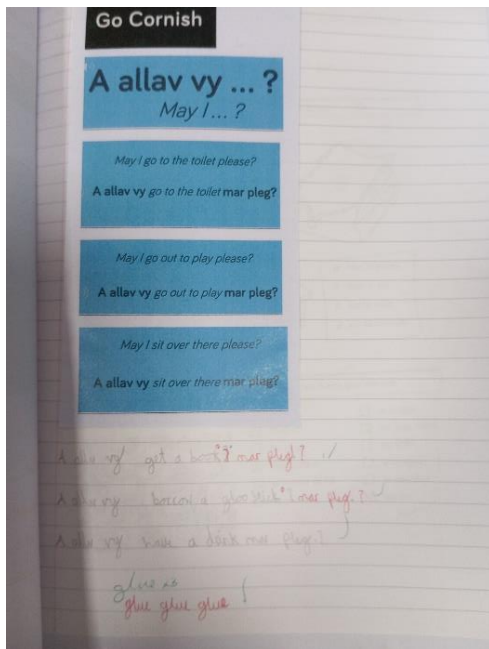 Go Cornish
A allav vy ... ?
May I ... ?
May I go to the toilet please?
A allav vy go to the toilet mar pleg?
May I go out to play please?
A allav vy go out to play mar pleg?
May I sit over there please?
A allav vy sit over there mar pleg?
vy get a book? mar pleg?
vy a mar pleg?
vy a mar pleg?
glue x3
glue glue glue